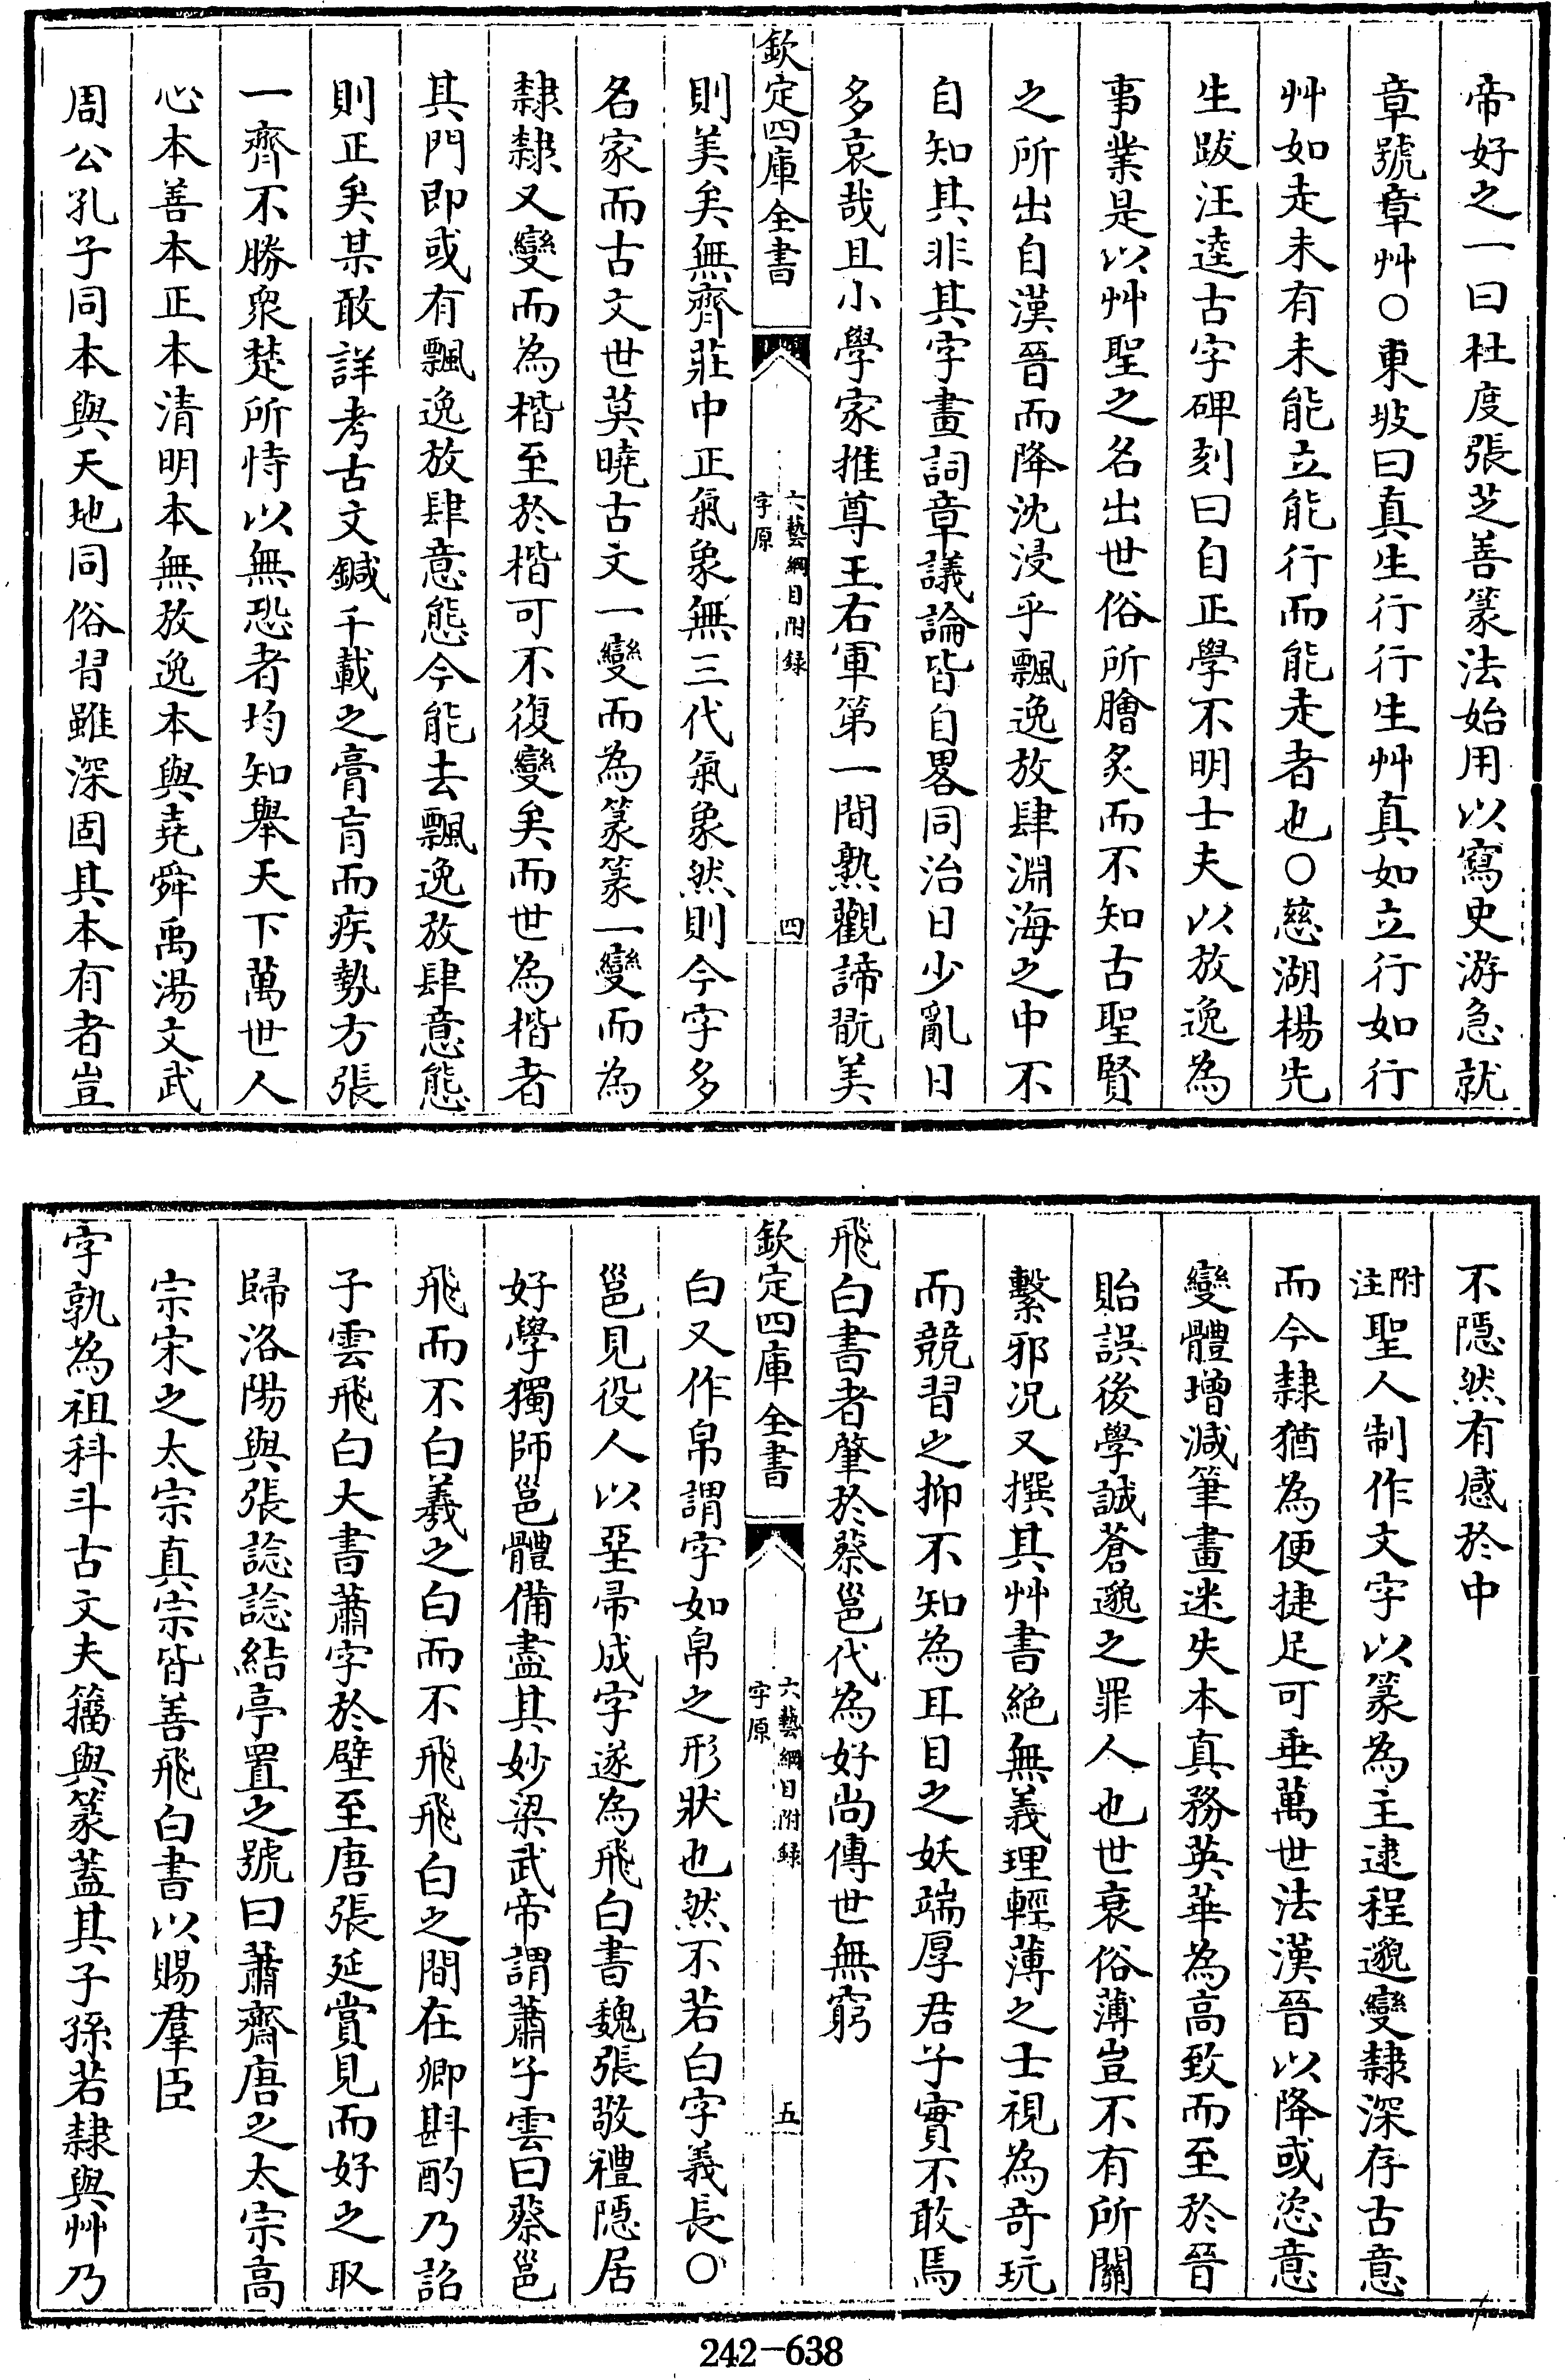 帝好之一曰杜度張芝善篆法始用以寫史游急就
章號章艸○東坡曰真生行行生艸真如立行如行
艸如走未有未能立能行而能走者也○慈湖楊先
生跋汪逵古字碑刻曰自正學不明士夫以放逸為
事業是以艸聖之名出世俗所膾炙而不知古聖賢
之所出自漢晉而降沈浸乎飄逸放肆淵海之中不
自知其非其字畫詞章議論皆自畧同治日少亂日
多哀哉且小學家推尊王右軍第一間熟觀諦翫美
欽定四庫全書
六藝綱目附録
字原
四
則美矣無齊莊中正氣象無三代氣象然則今字多
名家而古文世莫曉古文一變而為篆篆一變而為
隸隸又變而為楷至於楷可不復變矣而世為楷者
其門即或有飄逸放肆意態今能去飄逸放肆意態
則正矣某敢詳考古文鍼千載之膏肓而疾勢方張
一齊不勝衆楚所恃以無恐者均知舉天下萬世人
心本善本正本清明本無放逸本與堯舜禹湯文武
周公孔子同本與天地同俗習雖深固其本有者豈
不隱然有感於中
附注聖人制作文字以篆為主逮程邈變隸深存古意
而今隸猶為便捷足可垂萬世法漢晉以降或恣意
變體增減筆畫迷失本真務英華為高致而至於晉
貽誤後學誠蒼邈之罪人也世衰俗薄豈不有所關
繫邪况又撰其艸書絕無義理輕薄之士視為奇玩
而競習之抑不知為耳目之妖端厚君子實不敢焉
飛白書者肇於蔡邕代為好尚傳世無窮
欽定四庫全書
六藝綱目附録
字原
五
白又作帛謂字如帛之形狀也然不若白字義長○
邕見役人以堊帚成字遂為飛白書魏張敬禮隱居
好學獨師邕體備盡其妙梁武帝謂蕭子雲曰蔡邕
飛而不白羲之白而不飛飛白之間在卿斟酌乃詔
子雲飛白大書蕭字於壁至唐張延賞見而好之取
歸洛陽與張諗諗結亭置之號曰蕭齋唐之太宗高
宗宋之太宗真宗皆善飛白書以賜羣臣
字孰為祖科斗古文夫籀與篆蓋其子孫若隸與艸乃
242-638